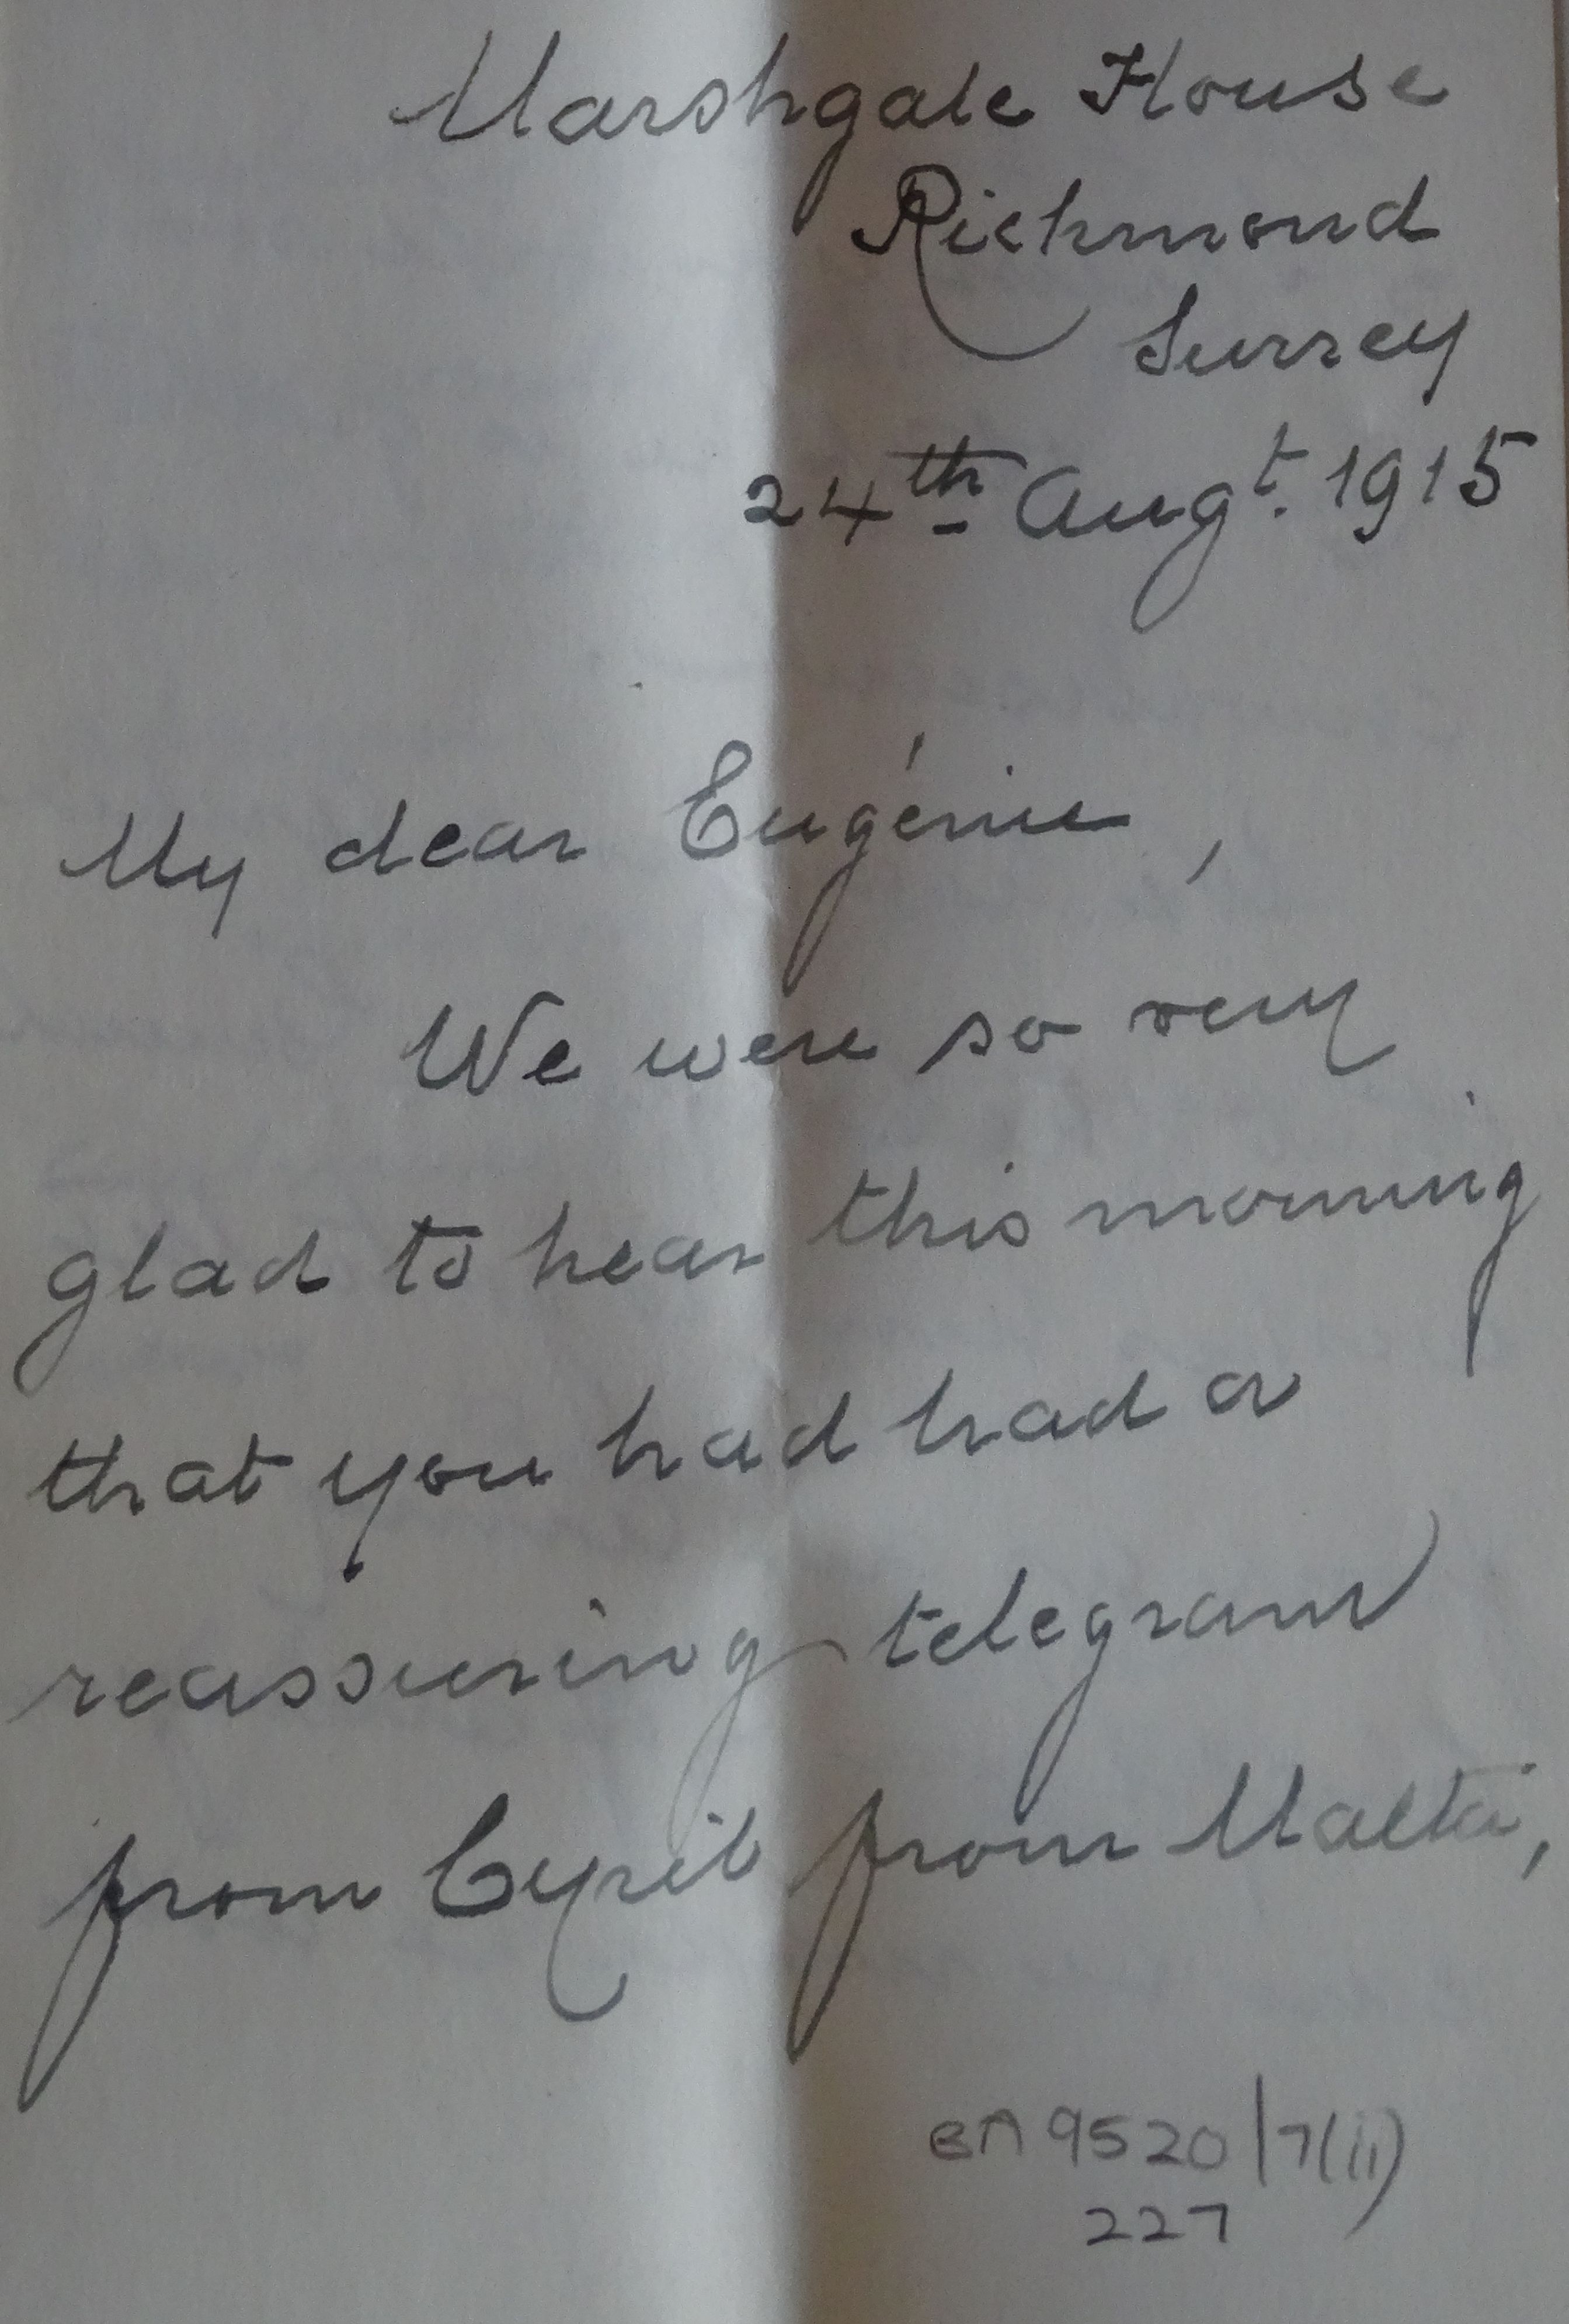 Marshgate House
Richmond
Surrey
24th Augt. 1915
My dear Eugénie,
We were so very
glad to hear this morning
that you had had a
reassuring telegram
from Cyril from Malta,
BA 9520/7(ii)
227